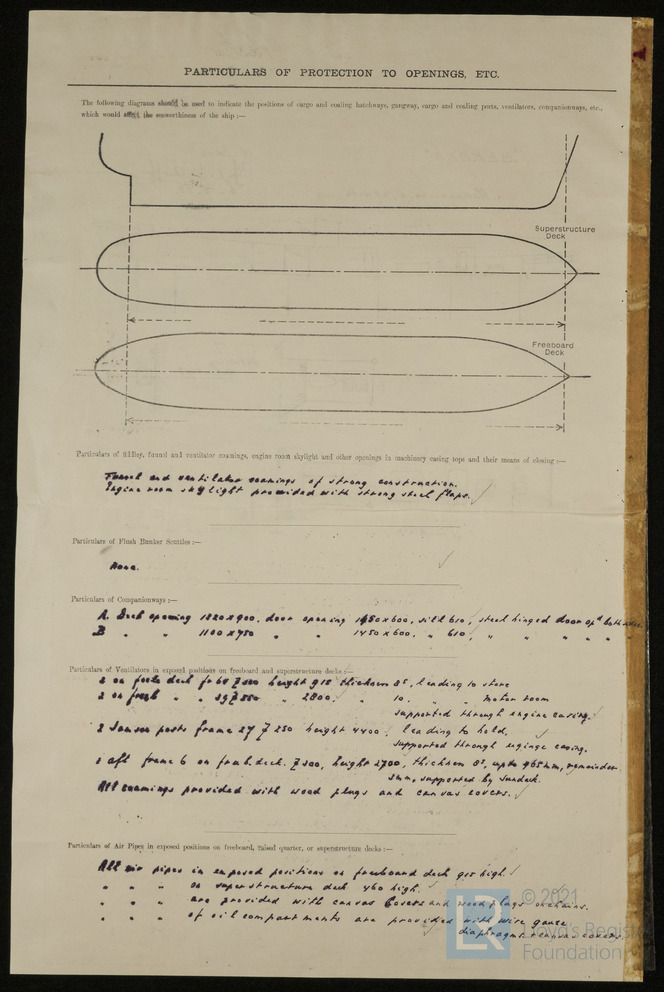 PARTICULARS OF PROTECTION TO OPENINGS, ETC.
The following diagrams should be used to indicate the positions of cargo and coaling hatchways, gangway, cargo and coaling ports, ventilators, companionways, etc.,
which would affect the seaworthiness of the ship :—
Superstructure
Deck
Freeboard
Deck
Particulars of fiddley, funnel and ventilator coamings, engine room skylight and other openings in machinery casing tops and their means of closing :—
Funnel and ventilator coamings of strong construction.
Engine room skylight provided with strong steel flaps.
Particulars of Flush Bunker Scuttles :—
None.
Particulars of Companionways :—
A. Deck opening 1220 x 900, door opening 1450 x 600, sill 610, steel hinged door opd both sides.
B " " 1100 x 750 " " 1450 x 600, " 610, " " " " "
Particulars of Ventilators in exposed positions on freeboard and superstructure decks :—
2 on deck fr 68 height 915 thickness 8, leading to store
2 on " " 550 " 2800, " 10, " " motor room
supported through engine casing.
2 Samson posts frame 27 250 height 4400, leading to hold,
supported through casing.
aft frame 6 on deck. 200, height 2700, thickness 8, upto 965mm, remainder
5mm, supported by sundeck.
All coamings provided with wood plugs and canvas covers.
Particulars of Air Pipes in exposed positions on freeboard, raised quarter, or superstructure decks :—
All air pipes in exposed positions on freeboard deck 915 high.
" " " on superstructure deck 460 high.
" " " are provided with canvas covers and wood plugs on chains.
" " " of oil compartments are provided with wire gauze
diaphragms + canvas covers.
LR
© 2021
Lloyd's Register
Foundation